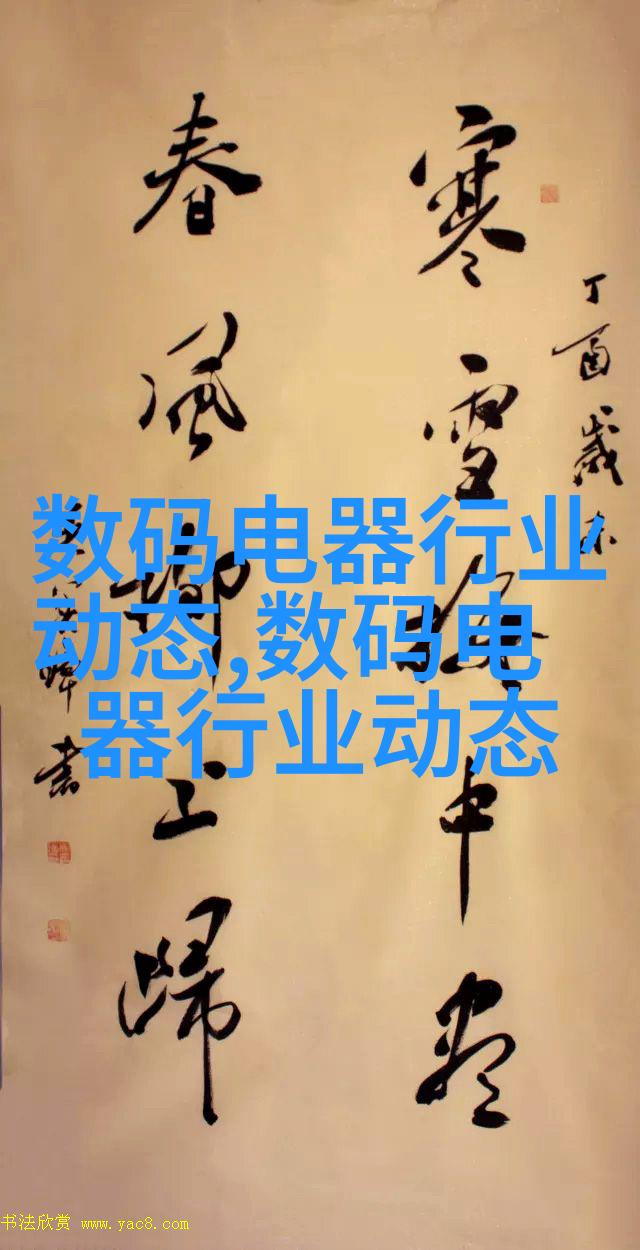 丁酉岁末
寒雪梅中尽
春风柳上归
书
数码电器行业
动态,数码电
器行业动态
书法欣赏 www.yac8.com